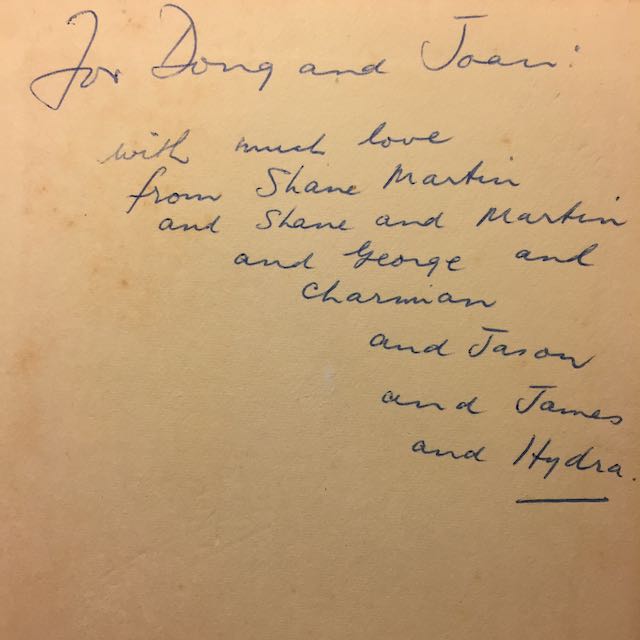 For Doug and Joan:
with much love
from Shane Martin
and Shane and Martin
and George and
Charmian
and Jason
and James
and Hydra.